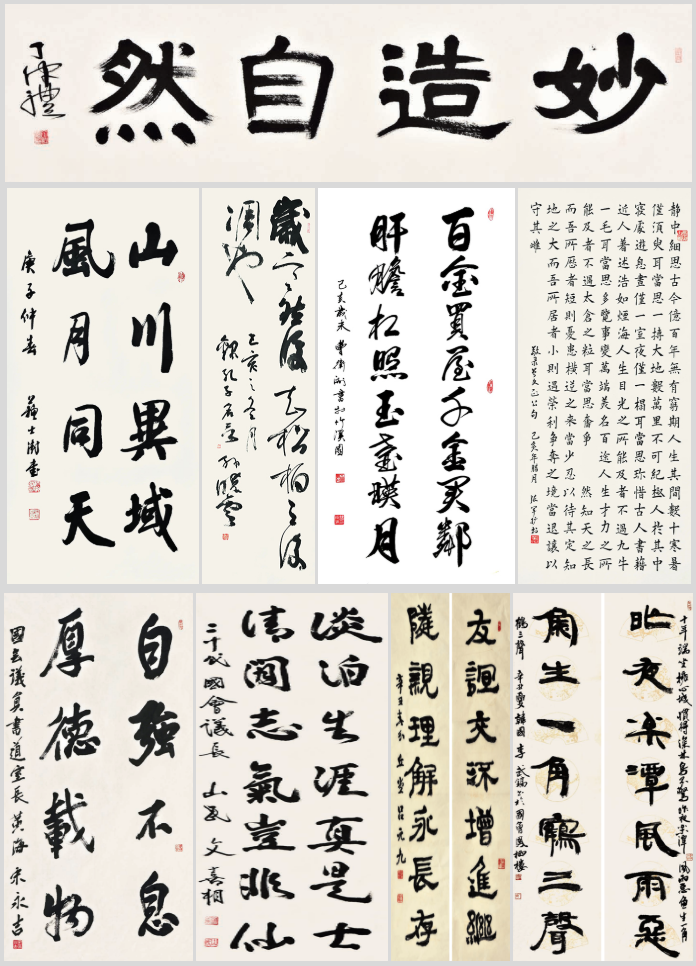 妙造自然
山川異域
風月同天
庚子仲春 蘇士澍書
歲寒然後知松柏之後
凋也
己亥之冬月
錄孔子名句 孫曉雲
百金買屋千金買鄰
肝膽相照玉壺暎月
己亥歲末
靜中細思古今億百年無有窮期人生其間數十寒暑
僅須臾耳當思一摶大地數萬里不可紀極人於其中
寢處遊息晝僅一室夜僅一榻耳當思珎惜古人書籍
近人著述浩如煙海人生目光之所能及者不過九牛
一毛耳當思多覽事變萬端美名百途人生才力之所
能及者不過太倉之粒耳當思奮爭 然知天之長
而吾所歷者短則憂患橫逆之來當少忍以待其定知
地之大而吾所居者小則遇榮利爭奪之境當退讓以
守其雌
敬录曾文正公句 己亥年腊月
自強不息
厚德載物
國会議員書道室長 黃海 宋永吉
淡泊生涯真是士
清閒志氣豈非仙
二十代國會議長 山民 文喜相
友誼交流增進繼
隣親理解永長存
辛丑春分 丘堂 呂元九
昨夜深潭風雨惡
魚生一角鶴三聲